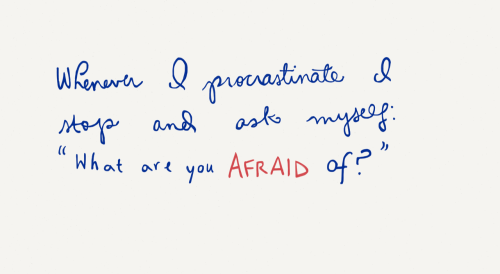 Whenever I procrastinate I
stop and ask myself:
"What are you AFRAID of?"